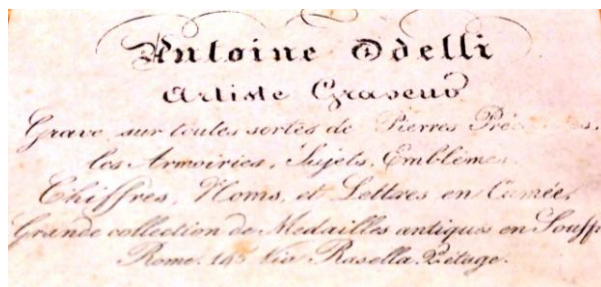 Antoine Odelli
Artiste Graveur
Grave sur toutes sortes de Pierres
les Armoiries, Sujets, Emblêmes
Chiffres, Noms, et Lettres en Camée,
Grande collection de Medailles antiques en
Rome. 145 Via Rasella. 2 étage.